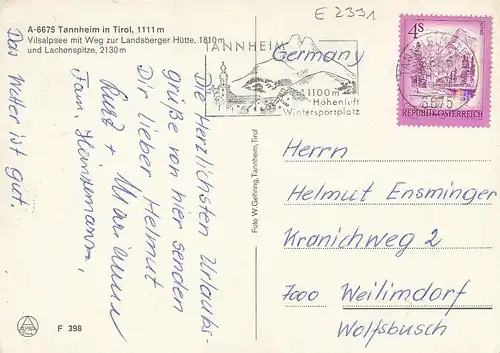 E 2391
A-6675 Tannheim in Tirol, 1111 m
Vilsalpsee mit Weg zur Landsberger Hütte, 1810 m
und Lachenspitze, 2130 m
Die Herzlichsten Urlaubs-
grüße von hier senden
Dir lieber Helmut
Kurt + Marianne
Fam. Hanselmann,
Das Wetter ist gut.
F 398
Foto W. Gehring, Tannheim, Tirol
TANNHEIM
1100 m
Höhenluft
Wintersportplatz
Germany
4 S
REPUBLIK ÖSTERREICH
6675
Herrn
Helmut Ensminger
Kranichweg 2
7000 Weilimdorf
Wolfsbusch